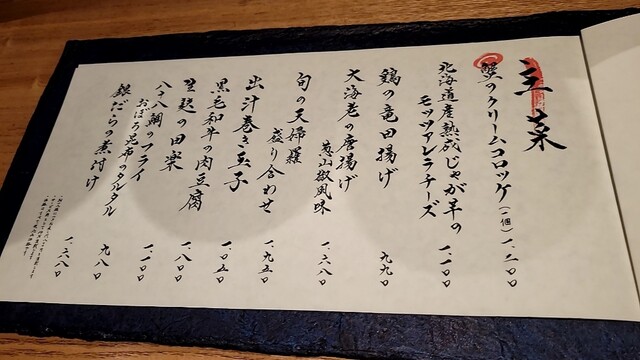 主菜
蟹のクリームコロッケ(一個) 一、二〇〇
北海道産熟成じゃが芋の
モッツァレラチーズ 一、一〇〇
鶏の竜田揚げ 九九〇
大海老の唐揚げ
葱山椒風味 一、二八〇
旬の天婦羅
盛り合わせ 一、九五〇
出汁巻き玉子 一、〇五〇
黒毛和牛の肉豆腐 一、八〇〇
生麩の田楽 一、一〇〇
鯛のフライ
おぼろ昆布のタルタル 九八〇
銀だらの煮付け 一、六八〇